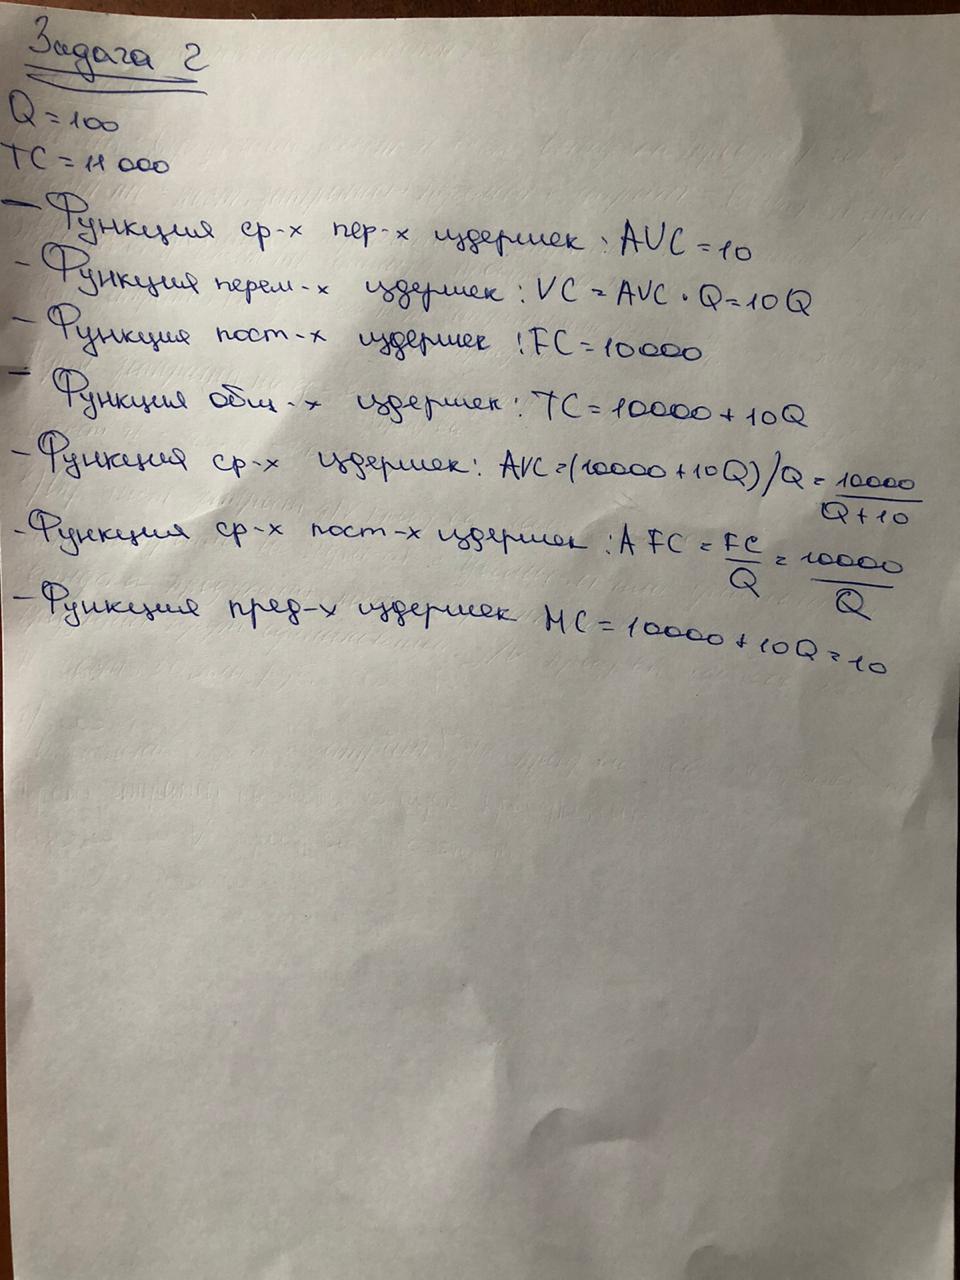 Задача 2
Q = 100
TC = 11 000
- Функция ср-х пер-х издержек : AVC = 10
- Функция перем-х издержек : VC = AVC · Q = 10Q
- Функция пост-х издержек : FC = 10000
- Функция общ-х издержек : TC = 10000 + 10Q
- Функция ср-х издержек : AVC = (10000 + 10Q) / Q = 10000 / Q+10
- Функция ср-х пост-х издержек : AFC = FC / Q = 10000 / Q
- Функция пред-х издержек MC = 10000 + 10Q = 10